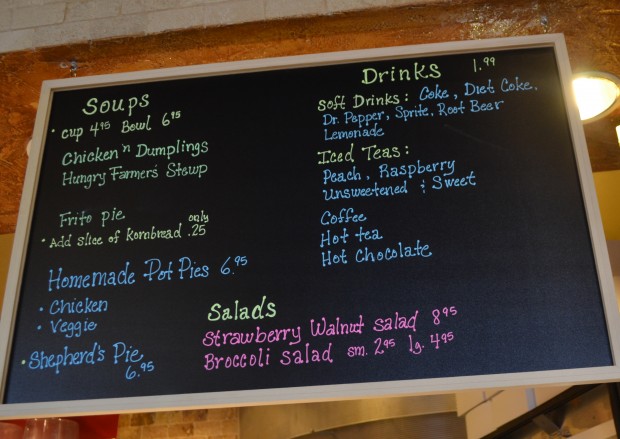 Soups
• cup 4.95 Bowl 6.95
Chicken 'n Dumplings
Hungry Farmer's Stewp
Frito pie
only
• Add slice of Kornbread .25
Homemade Pot Pies 6.95
• Chicken
• Veggie
• Shepherd's Pie
6.95
Drinks 1.99
Soft Drinks: Coke, Diet Coke,
Dr. Pepper, Sprite, Root Beer
Lemonade
Iced Teas:
Peach, Raspberry
Unsweetened & Sweet
Coffee
Hot tea
Hot Chocolate
Salads
Strawberry Walnut salad 8.95
Broccoli salad sm. 2.95 lg. 4.95